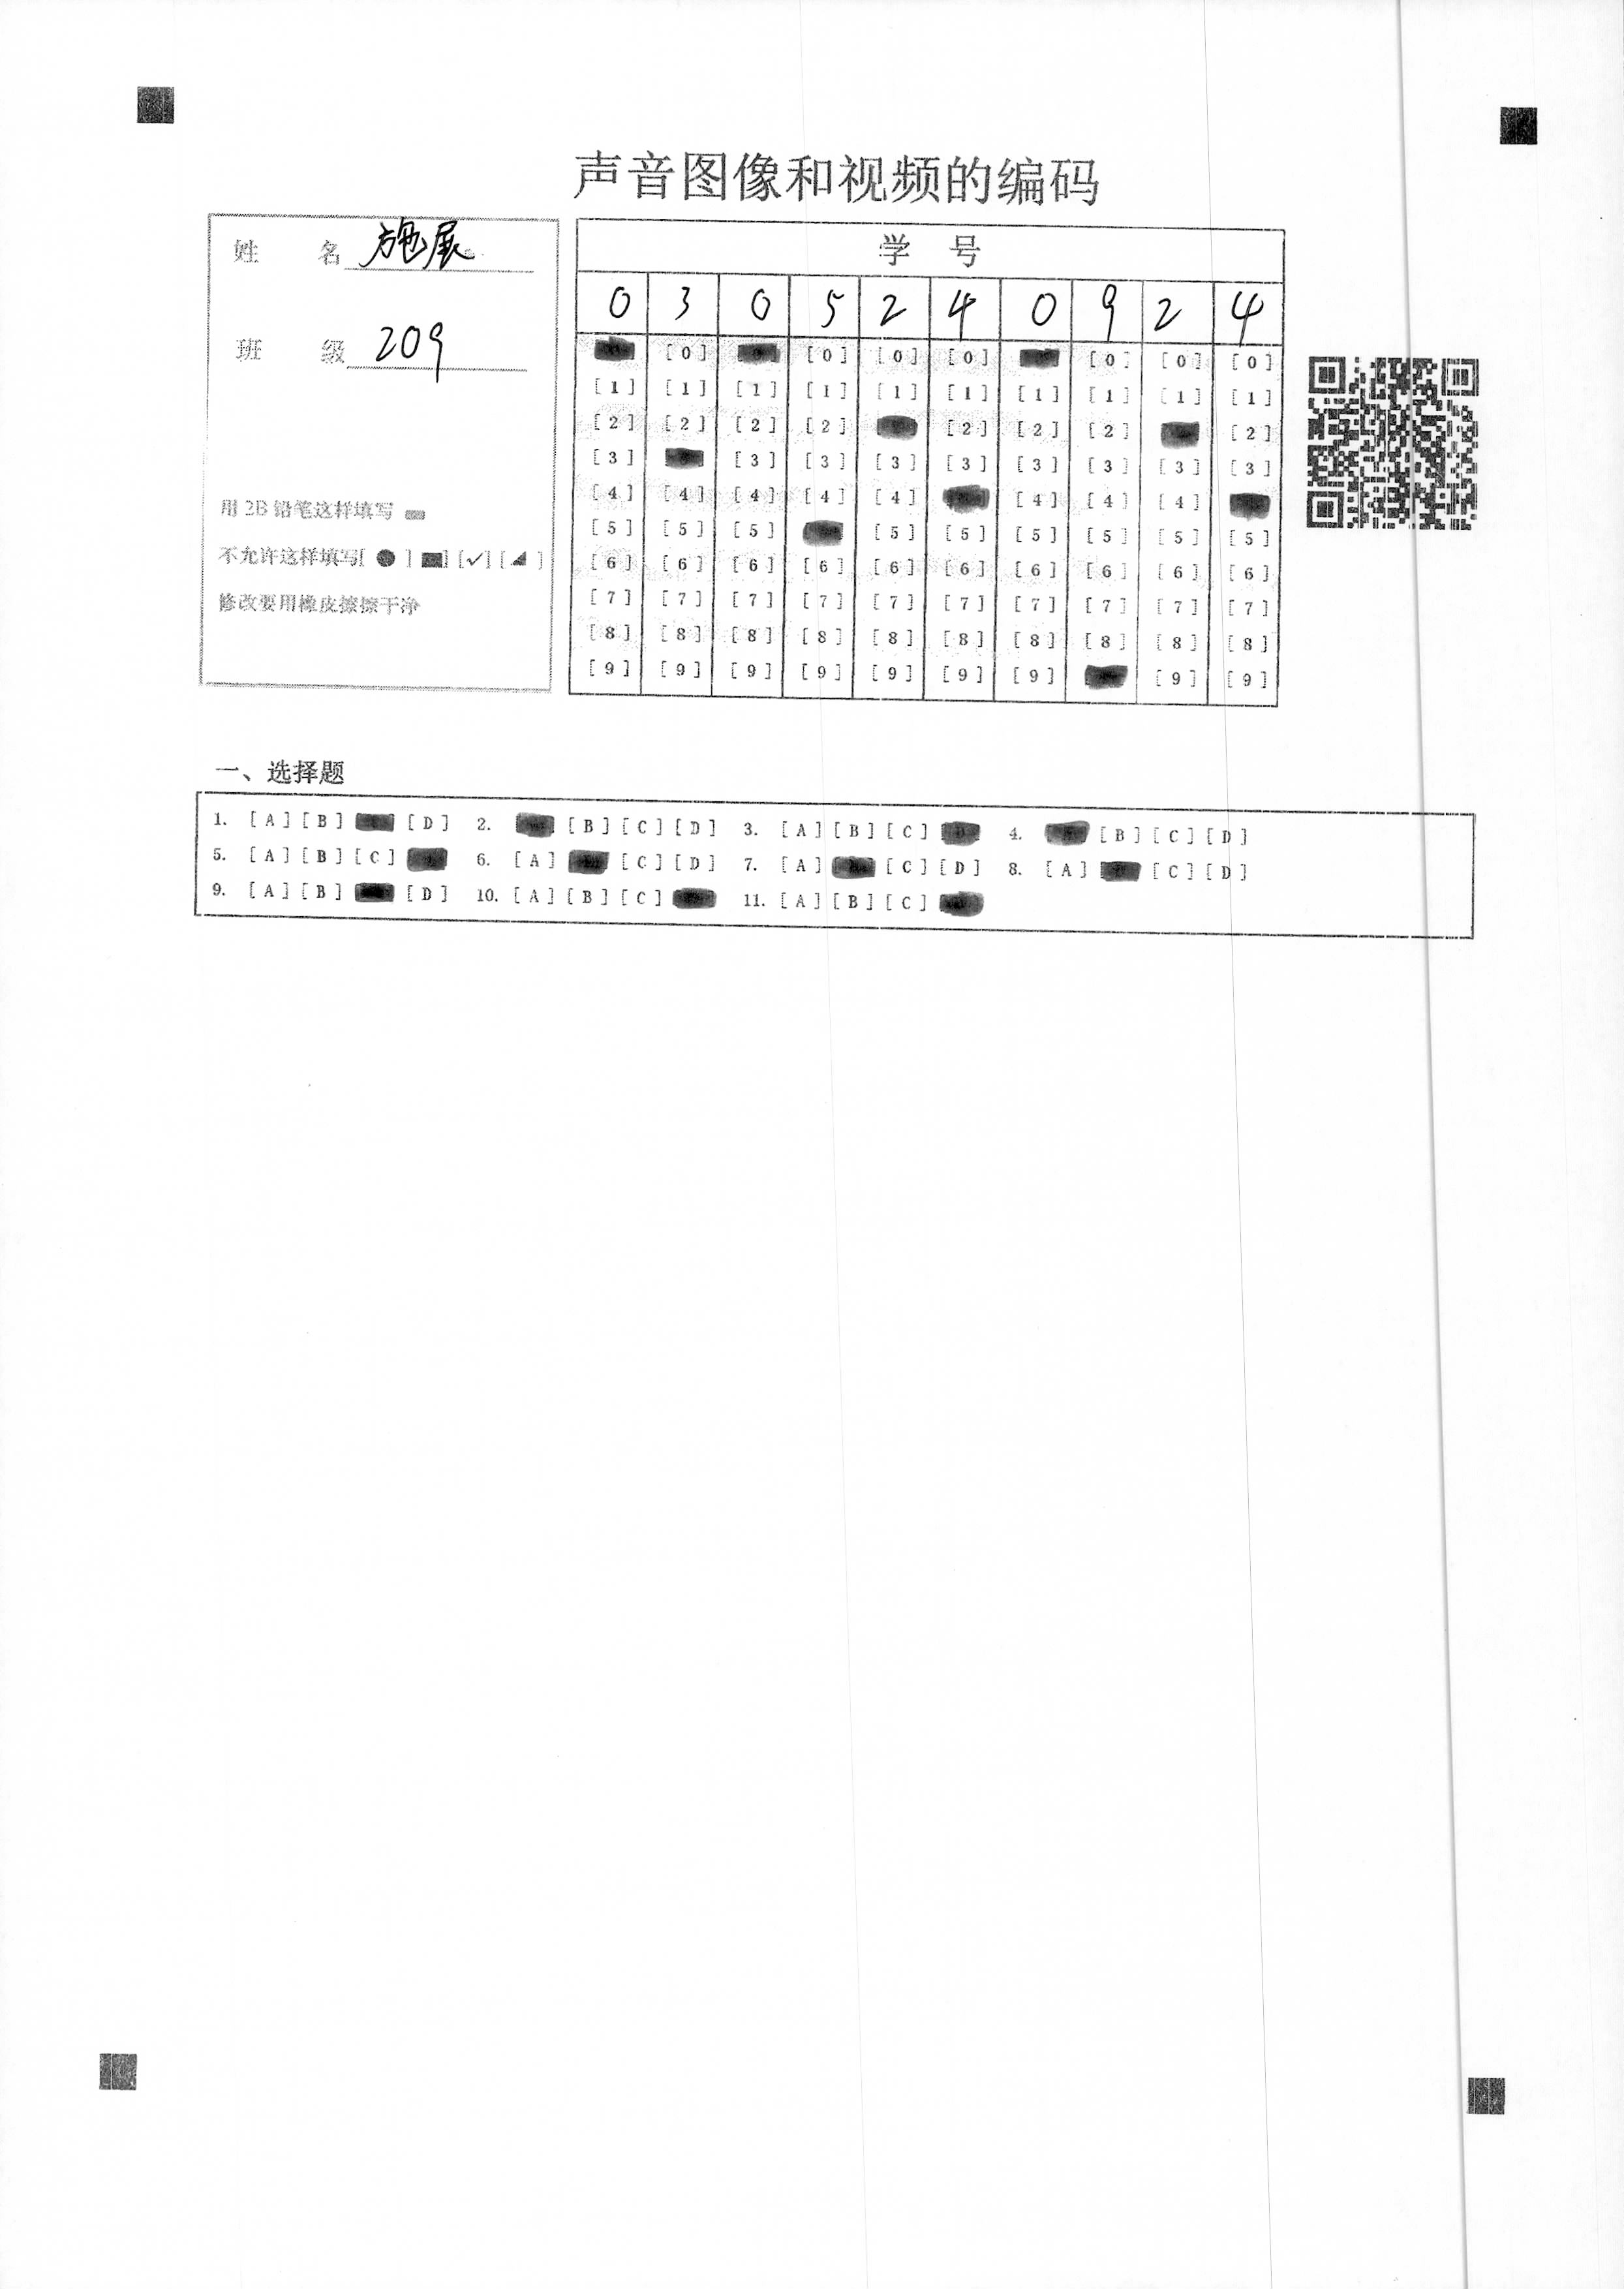 声音图像和视频的编码
姓 名 施展
班 级 209
用 2B 铅笔这样填写
不允许这样填写[ ● ] ■] [✓] [◢ ]
修改要用橡皮擦擦干净
学 号
0 3 0 5 2 4 0 9 2 4
[0] [0] [0] [0] [0] [0]
[1] [1] [1] [1] [1] [1] [1] [1] [1] [1]
[2] [2] [2] [2] [2] [2] [2] [2]
[3] [3] [3] [3] [3] [3] [3] [3] [3]
[4] [4] [4] [4] [4] [4] [4] [4]
[5] [5] [5] [5] [5] [5] [5] [5] [5]
[6] [6] [6] [6] [6] [6] [6] [6] [6] [6]
[7] [7] [7] [7] [7] [7] [7] [7] [7] [7]
[8] [8] [8] [8] [8] [8] [8] [8] [8] [8]
[9] [9] [9] [9] [9] [9] [9] [9] [9]
一、选择题
1. [A] [B] [D] 2. [B] [C] [D] 3. [A] [B] [C] 4. [B] [C] [D]
5. [A] [B] [C] 6. [A] [C] [D] 7. [A] [C] [D] 8. [A] [C] [D]
9. [A] [B] [D] 10. [A] [B] [C] 11. [A] [B] [C]